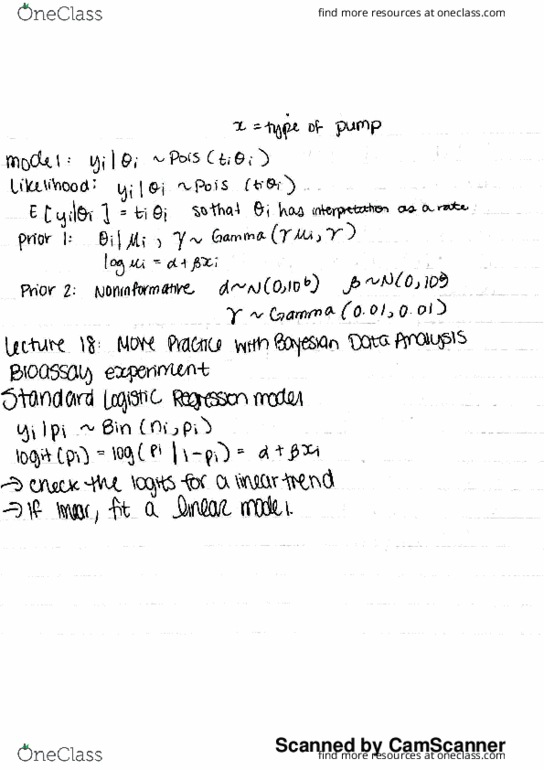 OneClass
find more resources at oneclass.com
x = type of pump
model: yi|θi ~ Pois(tiθi)
Likelihood: yi|θi ~ Pois (tiθi)
E[yi|θi] = tiθi so that θi has interpretation as a rate
Prior 1: θi|Mi, γ ~ Gamma(γMi, γ)
log Mi = α + βxi
Prior 2: Noninformative α~N(0,10⁶) β~N(0,10⁶)
γ ~ Gamma(0.01, 0.01)
Lecture 18: More Practice with Bayesian Data Analysis
Bioassay experiment
Standard Logistic Regression model
yi|pi ~ Bin(ni, pi)
logit(pi) = log(pi | 1-pi) = α + βxi
→ check the logits for a linear trend
→ If linear, fit a linear model.
Scanned by CamScanner
OneClass
find more resources at oneclass.com